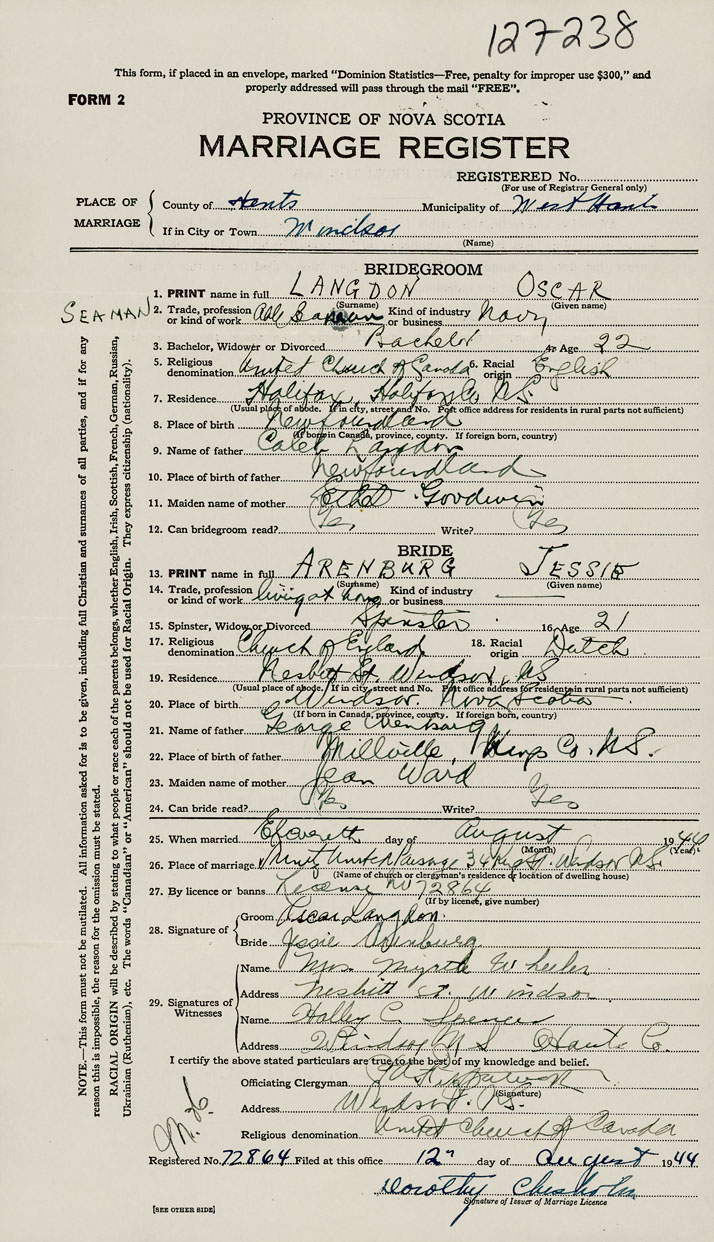 127-238
This form, if placed in an envelope, marked "Dominion Statistics—Free, penalty for improper use $300," and
properly addressed will pass through the mail "FREE".
FORM 2
PROVINCE OF NOVA SCOTIA
MARRIAGE REGISTER
REGISTERED No.
(For use of Registrar General only)
PLACE OF MARRIAGE
County of Hants Municipality of West Hants
If in City or Town Windsor
(Name)
BRIDEGROOM
1. PRINT name in full LANGDON OSCAR
(Surname) (Given name)
SEAMAN
2. Trade, profession or kind of work Able Kind of industry or business Navy
3. Bachelor, Widower or Divorced Bachelor 4. Age 22
5. Religious denomination United Church of Canada 6. Racial origin English
7. Residence Halifax, Halifax Co N.S.
(Usual place of abode. If in city, street and No. Post office address for residents in rural parts not sufficient)
8. Place of birth Newfoundland
(If born in Canada, province, county. If foreign born, country)
9. Name of father Caleb Langdon
10. Place of father Newfoundland
11. Maiden name of mother Ethel Goodwin
12. Can bridegroom read? Yes Write? Yes
BRIDE
13. PRINT name in full ARENBURG JESSIE
(Surname) (Given name)
14. Trade, profession or kind of work living at home Kind of industry or business
15. Spinster, Widow or Divorced Spinster 16. Age 21
17. Religious denomination Church of England 18. Racial origin Dutch
19. Residence Nesbit St. Windsor, NS
(Usual place of abode. If in city, street and No. Post office address for residents in rural parts not sufficient)
20. Place of birth Windsor Nova Scotia
(If born in Canada, province, county. If foreign born, country)
21. Name of father George Arenburg
22. Place of birth of father Millville, Kings Co. N.S.
23. Maiden name of mother Jean Ward
24. Can bride read? Yes Write? Yes
25. When married Eleventh day of August 1944
(Month) (Year)
26. Place of marriage United Parsonage 34 King St. Windsor N.S.
(Name of church or clergyman's residence or location of dwelling house)
27. By licence or banns License No 72864
(If by licence, give number)
28. Signature of
Groom Oscar Langdon
Bride Jessie Arenburg
29. Signatures of Witnesses
Name Mrs. Myrtle Wheeler
Address Nesbitt St. Windsor
Name Halley C. Spencer
Address Windsor N S Hants Co.
I certify the above stated particulars are true to the best of my knowledge and belief.
Officiating Clergyman
(Signature)
Address Windsor. N.S.
Religious denomination United Church of Canada
Registered No. 72864 Filed at this office 12" day of August 1944
Dorothy Chisholm
Signature of Issuer of Marriage Licence
[SEE OTHER SIDE]
NOTE.—This form must not be mutilated. All information asked for is to be given, including full Christian and surnames of all parties, and if for any
reason this is impossible, the reason for the omission must be stated.
RACIAL ORIGIN will be described by stating to what people or race each of the parents belongs, whether English, Irish, Scottish, French, German, Russian,
Ukrainian (Ruthenian), etc. The words "Canadian" or "American" should not be used for Racial Origin. They express citizenship (nationality).